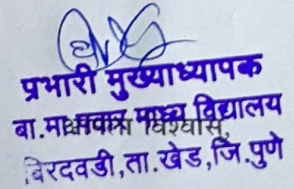 प्रभारी मुख्याध्यापक
बा.मा.पवार माध्य विद्यालय
विश्वास,
बिरदवडी,ता.खेड,जि.पुणे